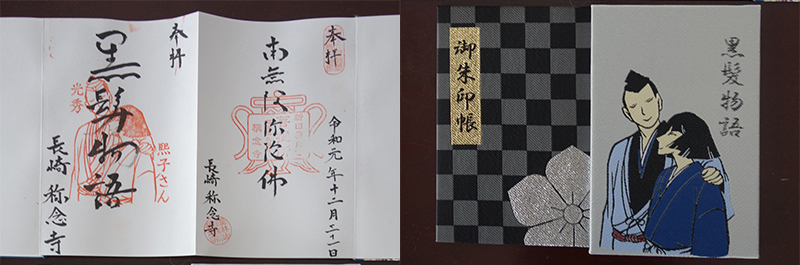 奉拝
令和元年十二月二十一日
南無阿弥陀佛
長崎 称念寺
奉拝
黒髪物語
熙子さん
光秀
長崎 称念寺
御朱印帳
黒髪物語